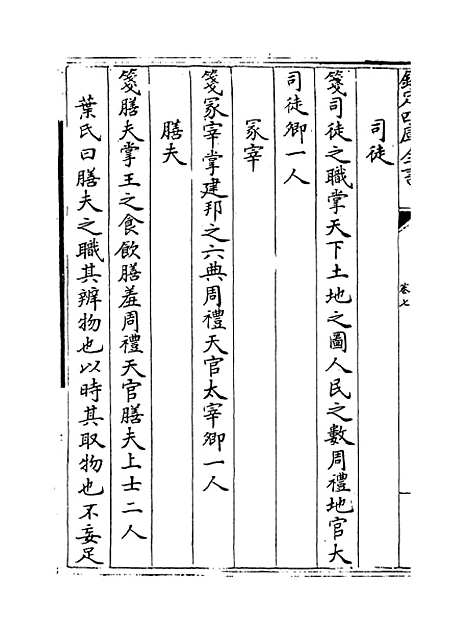 欽定四庫全書
卷七
司徒
箋司徒之職掌天下土地之圖人民之數周禮地官大
司徒卿一人
冢宰
箋冢宰掌建邦之六典周禮天官太宰卿一人
膳夫
箋膳夫掌王之食飲膳羞周禮天官膳夫上士二人
葉氏曰膳夫之職其辨物也以時其取物也不妄足